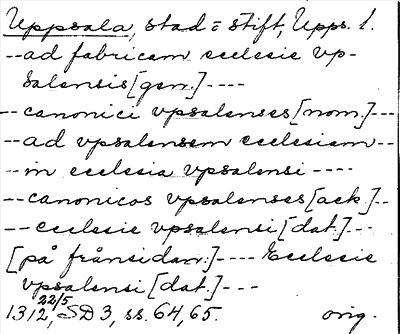 Uppsala, stad o stift, Upps. l.
-- ad fabricam ecclesie vp-
salensis [gen.] ----
-- canonici vpsalenses [nom.] ---
-- ad vpsalensem ecclesiam --
-- in ecclesia vpsalensi ----
-- canonicos vpsalenses [ack.] --
-- ecclesie vpsalensi [dat.] ---
[på frånsidan.] ---- Ecclesie
vpsalensi [dat.] ---
1312 22/5, SD 3, ss. 64, 65. orig.